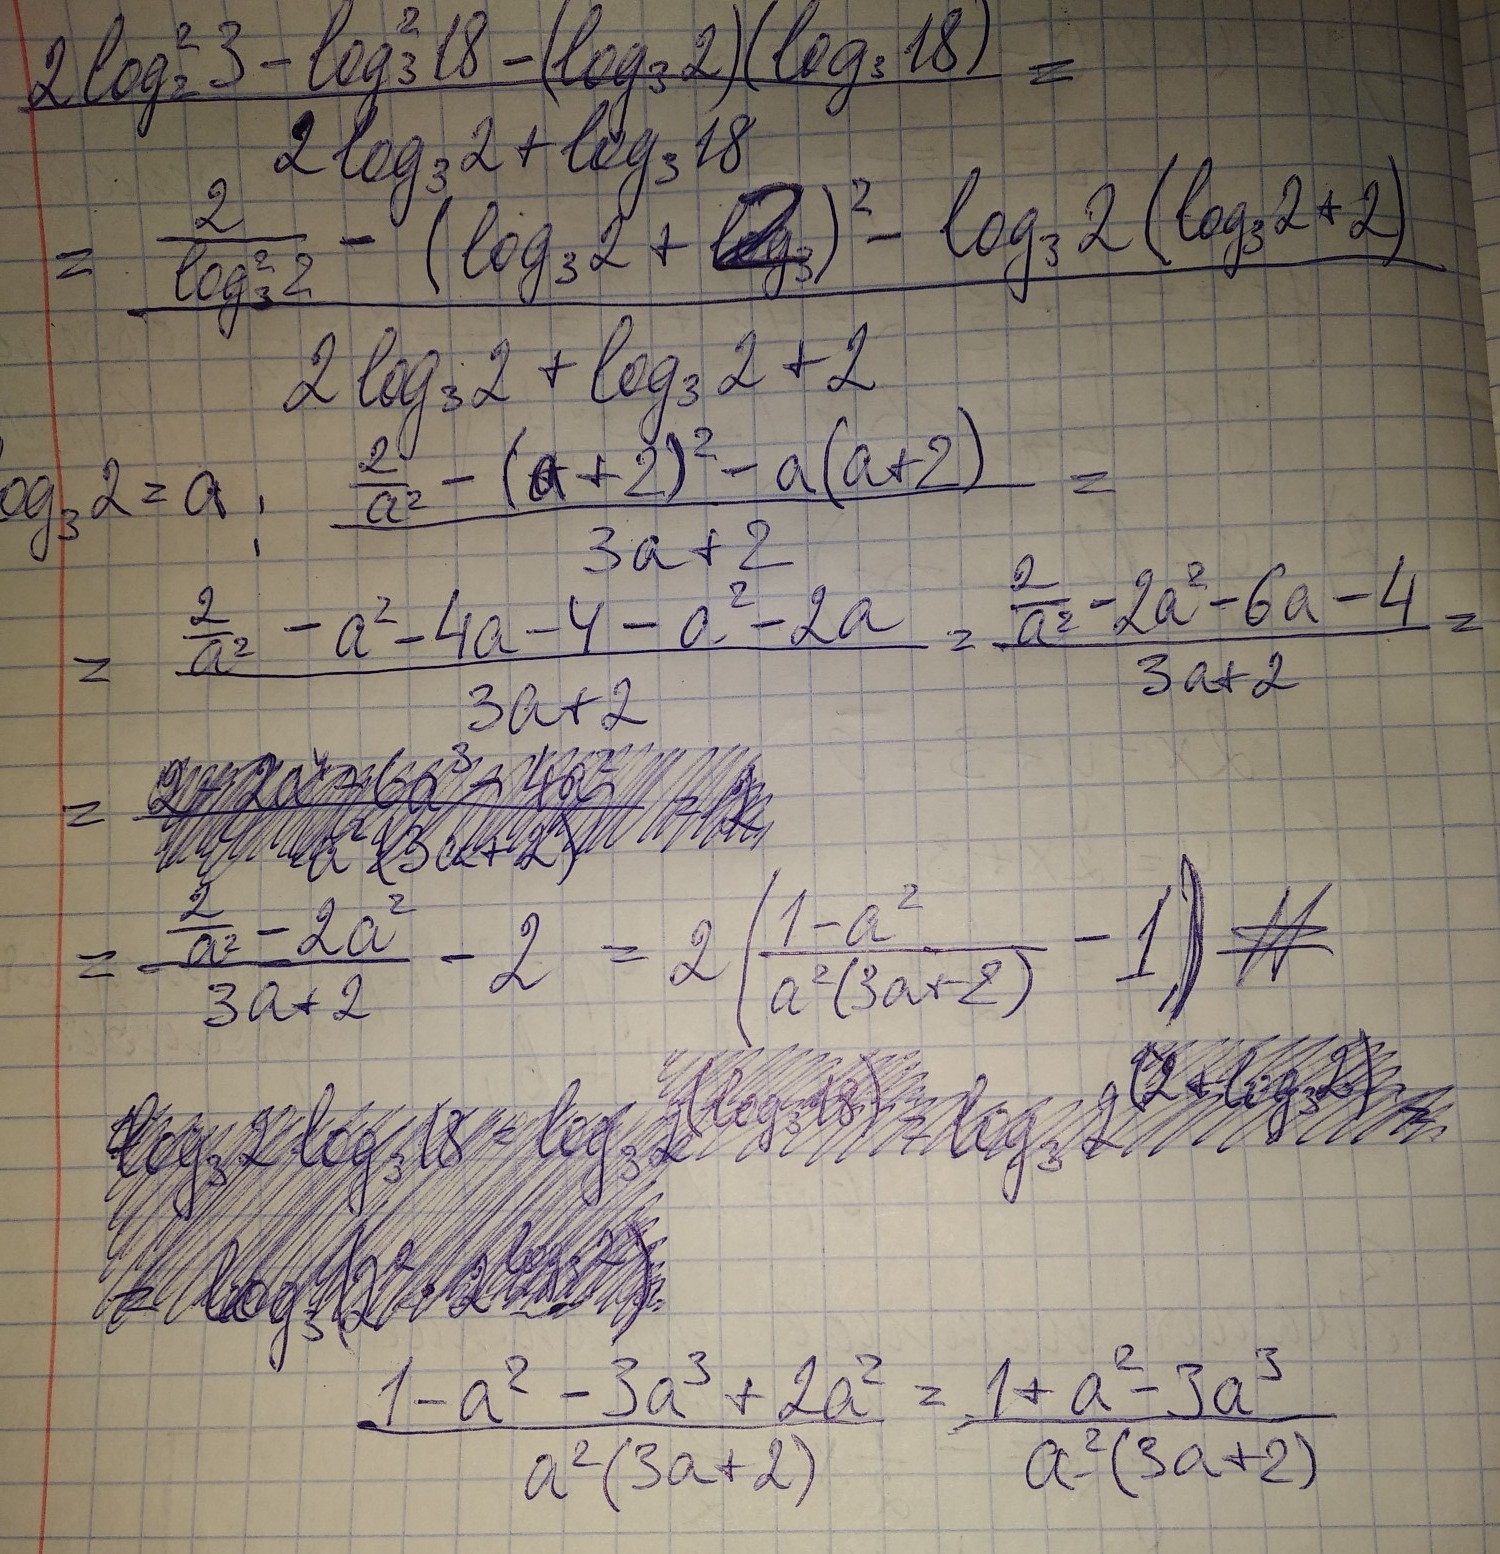 2log₂²3 - log₃²18 - (log₃2)(log₃18) =
2log₃2 + log₃18
= 2/log₃²2 - (log₃2 + 2)² - log₃2(log₃2+2)
2log₃2 + log₃2 + 2
log₃2 = a; 2/a² - (a+2)² - a(a+2) =
3a+2
= 2/a² - a² - 4a - 4 - a² - 2a = 2/a² - 2a² - 6a - 4 =
3a+2 3a+2
=
a²(3a+2)
= 2/a² - 2a² - 2 = 2(1-a² - 1) #
3a+2 a²(3a+2)
log₃2 log₃18 = log₃2^(log₃18) = log₃2^(2+log₃2) =
= log₃(2² · 2^log₃2)
1-a² - 3a³ + 2a² = 1+a² - 3a³
a²(3a+2) a²(3a+2)